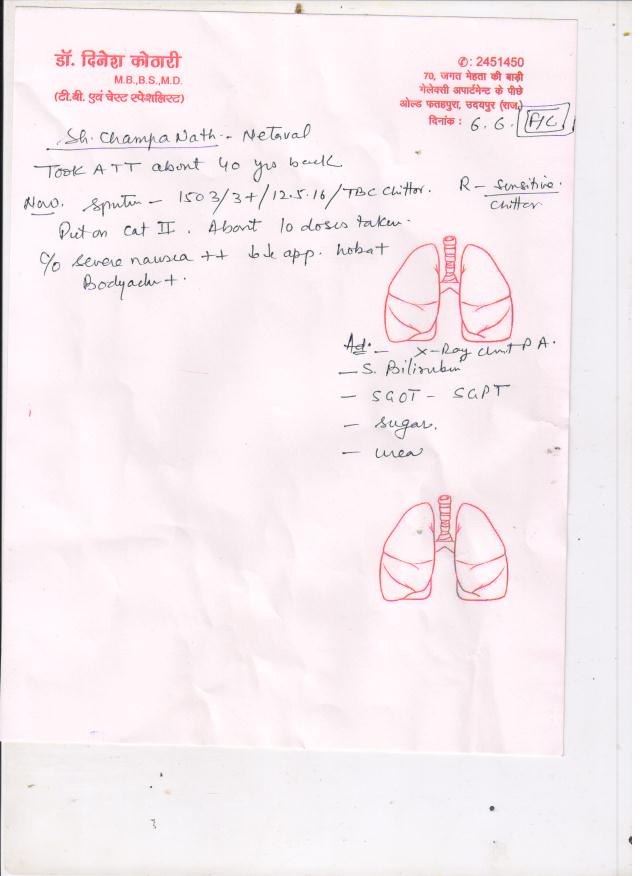 डॉ. दिनेश कोठारी
M.B.,B.S.,M.D.
(टी.बी. एवं चेस्ट स्पेशलिस्ट)
✆: 2451450
70, जगत मेहता की बाड़ी
गेलेक्सी अपार्टमेन्ट के पीछे
ओल्ड फतहपुरा, उदयपुर (राज.)
दिनांक : 6.6. F/C
Sh. Champa Nath - Netaval
Took ATT about 40 yrs back
Now. Sputum - 1503/3+/12.5.16/TBC Chittor. R - Sensitive.
Chittor
Put on Cat II. About 10 doses taken.
C/o severe nausea ++ app.
Bodyache +.
Ad: - X-Ray Chest P A.
- S. Bilirubin
- SGOT - SGPT
- Sugar.
- Urea